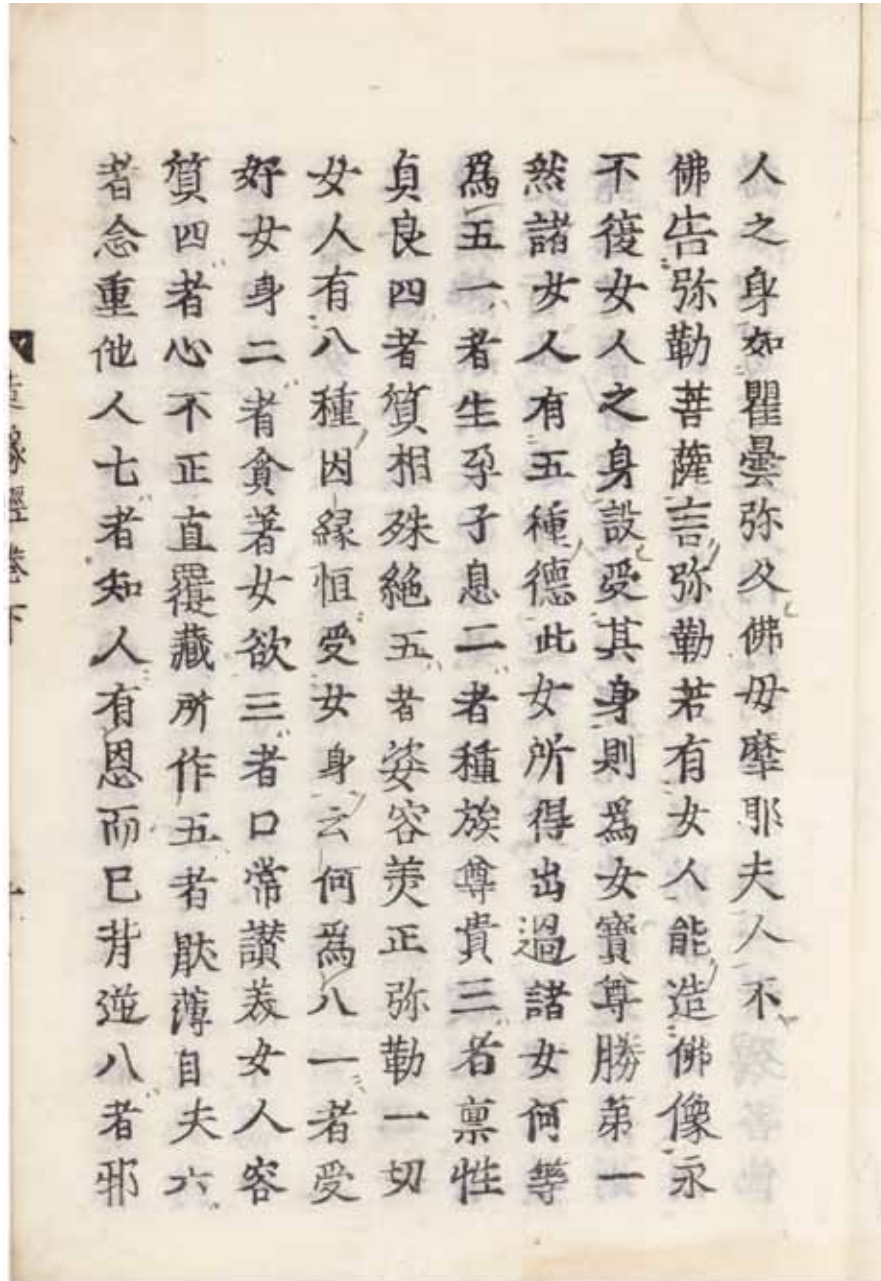 人之身如瞿曇弥及佛母摩耶夫人不
佛告弥勒菩薩言弥勒若有女人能造佛像永
不復女人之身設受其身則爲女寶尊勝第一
然諸女人有五種德此女所得出過諸女何等
爲五一者生孕子息二者種族尊貴三者禀性
貞良四者質相殊絶五者姿容美正弥勒一切
女人有八種因縁恒受女身云何爲八一者受
好女身二者貪著女欲三者口常讃美女人容
質四者心不正直覆藏所作五者猒薄自夫六
者念重他人七者知人有恩而已背逆八者邪
造像經巻下